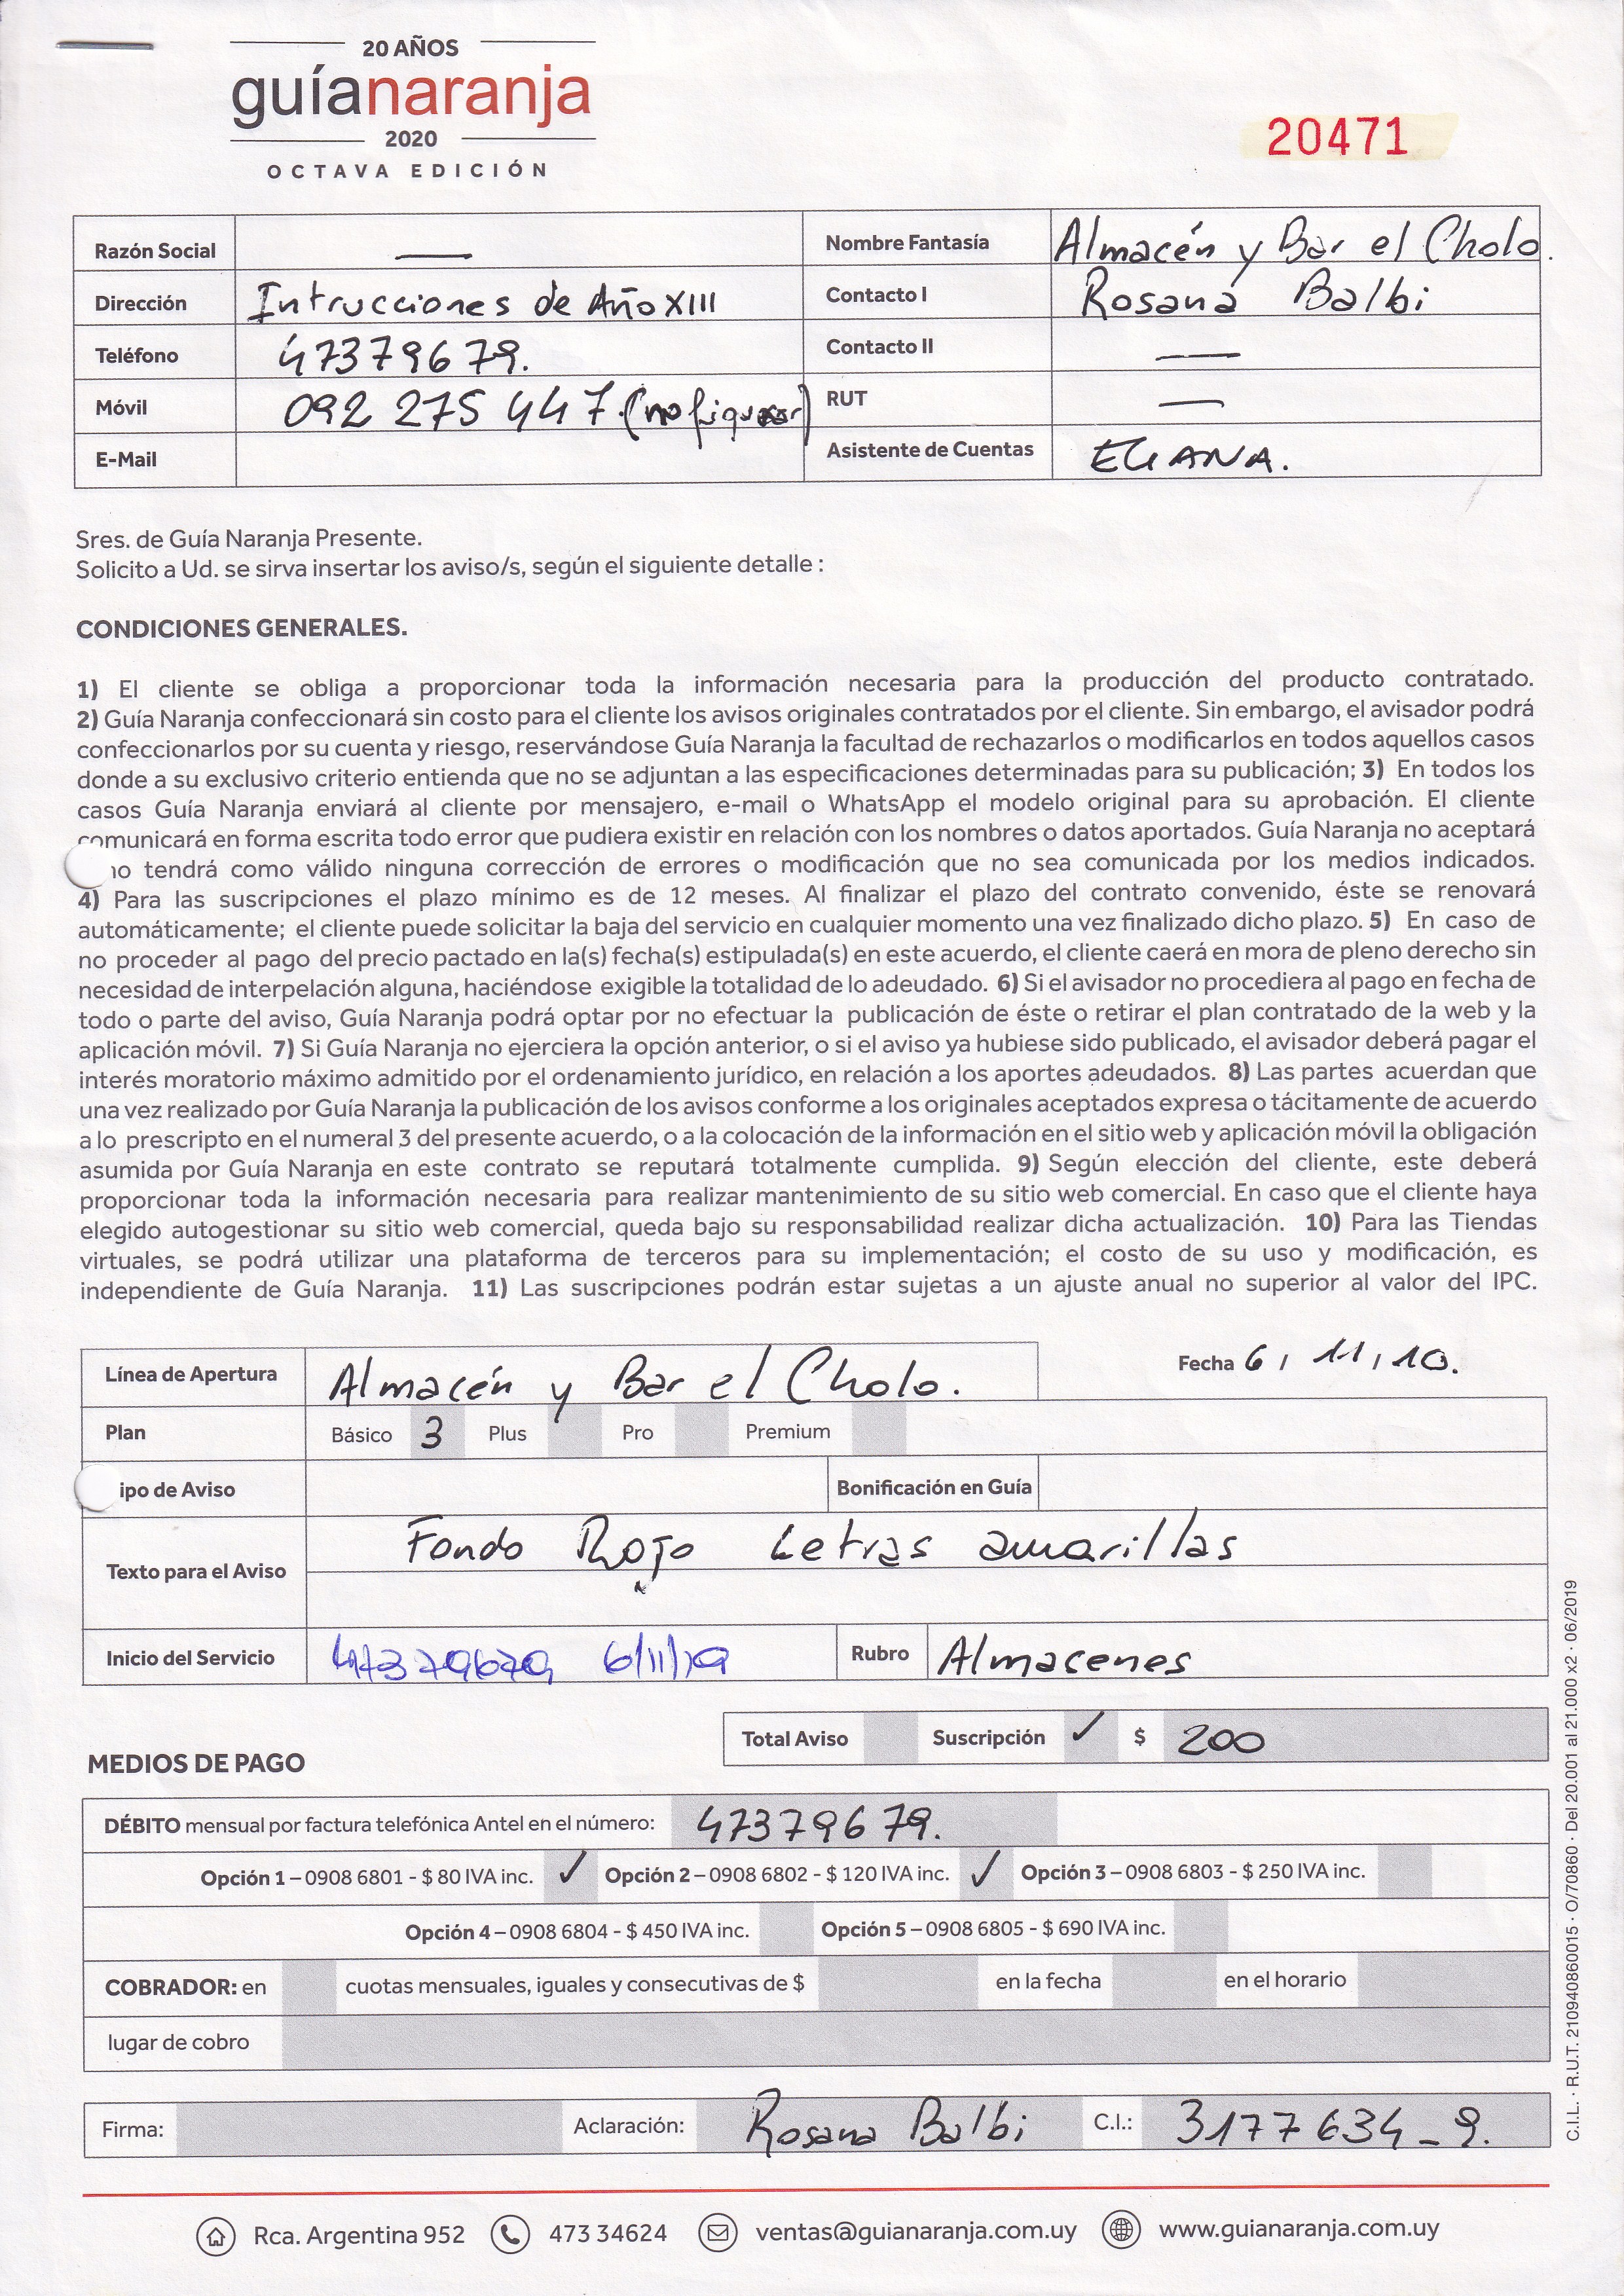 20 AÑOS
guíanaranja
2020
OCTAVA EDICIÓN
20471
Razón Social —
Nombre Fantasía Almacén y Bar el Cholo.
Dirección Intrucciones de Año XIII
Contacto I Rosana Balbi
Teléfono 47379679.
Contacto II —
Móvil 092 275 447. (no figurar)
RUT —
E-Mail
Asistente de Cuentas ELIANA.
Sres. de Guía Naranja Presente.
Solicito a Ud. se sirva insertar los aviso/s, según el siguiente detalle :
CONDICIONES GENERALES.
1) El cliente se obliga a proporcionar toda la información necesaria para la producción del producto contratado.
2) Guía Naranja confeccionará sin costo para el cliente los avisos originales contratados por el cliente. Sin embargo, el avisador podrá
confeccionarlos por su cuenta y riesgo, reservándose Guía Naranja la facultad de rechazarlos o modificarlos en todos aquellos casos
donde a su exclusivo criterio entienda que no se adjuntan a las especificaciones determinadas para su publicación; 3) En todos los
casos Guía Naranja enviará al cliente por mensajero, e-mail o WhatsApp el modelo original para su aprobación. El cliente
comunicará en forma escrita todo error que pudiera existir en relación con los nombres o datos aportados. Guía Naranja no aceptará
no tendrá como válido ninguna corrección de errores o modificación que no sea comunicada por los medios indicados.
4) Para las suscripciones el plazo mínimo es de 12 meses. Al finalizar el plazo del contrato convenido, éste se renovará
automáticamente; el cliente puede solicitar la baja del servicio en cualquier momento una vez finalizado dicho plazo. 5) En caso de
no proceder al pago del precio pactado en la(s) fecha(s) estipulada(s) en este acuerdo, el cliente caerá en mora de pleno derecho sin
necesidad de interpelación alguna, haciéndose exigible la totalidad de lo adeudado. 6) Si el avisador no procediera al pago en fecha de
todo o parte del aviso, Guía Naranja podrá optar por no efectuar la publicación de éste o retirar el plan contratado de la web y la
aplicación móvil. 7) Si Guía Naranja no ejerciera la opción anterior, o si el aviso ya hubiese sido publicado, el avisador deberá pagar el
interés moratorio máximo admitido por el ordenamiento jurídico, en relación a los aportes adeudados. 8) Las partes acuerdan que
una vez realizado por Guía Naranja la publicación de los avisos conforme a los originales aceptados expresa o tácitamente de acuerdo
a lo prescripto en el numeral 3 del presente acuerdo, o a la colocación de la información en el sitio web y aplicación móvil la obligación
asumida por Guía Naranja en este contrato se reputará totalmente cumplida. 9) Según elección del cliente, este deberá
proporcionar toda la información necesaria para realizar mantenimiento de su sitio web comercial. En caso que el cliente haya
elegido autogestionar su sitio web comercial, queda bajo su responsabilidad realizar dicha actualización. 10) Para las Tiendas
virtuales, se podrá utilizar una plataforma de terceros para su implementación; el costo de su uso y modificación, es
independiente de Guía Naranja. 11) Las suscripciones podrán estar sujetas a un ajuste anual no superior al valor del IPC.
Línea de Apertura Almacén y Bar el Cholo.
Fecha 6 / 11 / 10.
Plan Básico 3 Plus Pro Premium
ipo de Aviso Bonificación en Guía
Texto para el Aviso Fondo Rojo Letras amarillas
Inicio del Servicio 47379679 6/11/19 Rubro Almacenes
Total Aviso Suscripción ✓ $ 200
MEDIOS DE PAGO
DÉBITO mensual por factura telefónica Antel en el número: 47379679.
Opción 1 – 0908 6801 - $ 80 IVA inc. ✓ Opción 2 – 0908 6802 - $ 120 IVA inc. ✓ Opción 3 – 0908 6803 - $ 250 IVA inc.
Opción 4 – 0908 6804 - $ 450 IVA inc. Opción 5 – 0908 6805 - $ 690 IVA inc.
COBRADOR: en cuotas mensuales, iguales y consecutivas de $ en la fecha en el horario
lugar de cobro
Firma: Aclaración: Rosana Balbi C.I.: 3177634_9.
C.I.L. · R.U.T. 210940860015 · O/70860 · Del 20.001 al 21.000 x2 · 06/2019
Rca. Argentina 952 473 34624 ventas@guianaranja.com.uy www.guianaranja.com.uy